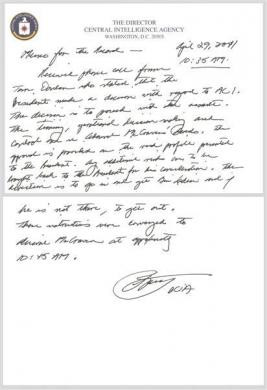 THE DIRECTOR
CENTRAL INTELLIGENCE AGENCY
WASHINGTON, D.C. 20505
Memo for the Record — April 29, 2011
10:35 AM.
Received phone call from
Tom Donilon who stated that the
President made a decision with regard to AC1
The decision is to proceed with the assault.
The timing, operational decision making and
control are in Admiral McRaven's hands. The
approval is provided on the risk profile presented
to the President. Any additional risks are to be
brought back to the President for his consideration. The
direction is to go in and get Bin Laden and if
he is not there, to get out.
Those instructions were conveyed to
Admiral McRaven at approximately
10:45 AM.
DCIA